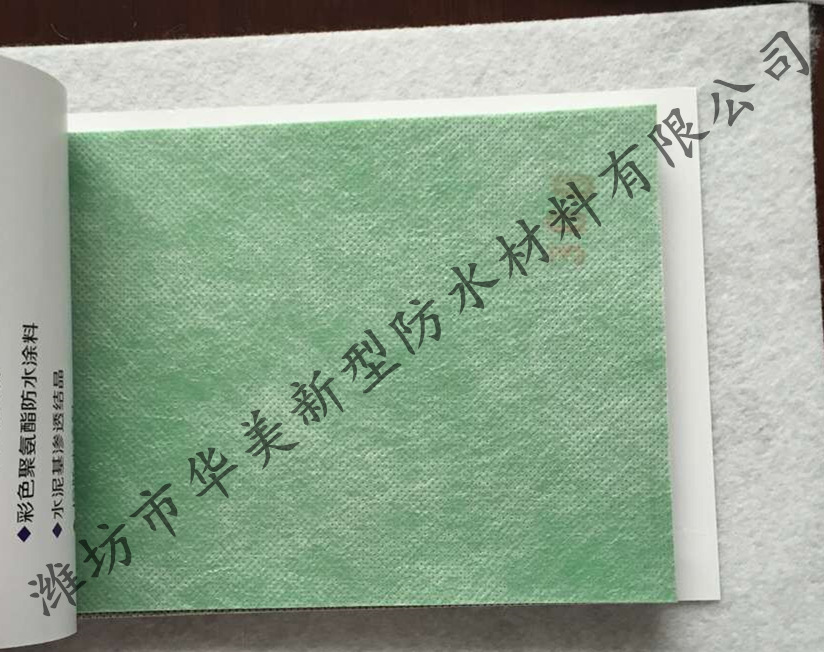 潍坊市华美新型防水材料有限公司
◆彩色聚氨酯防水涂料
◆水泥基渗透结晶